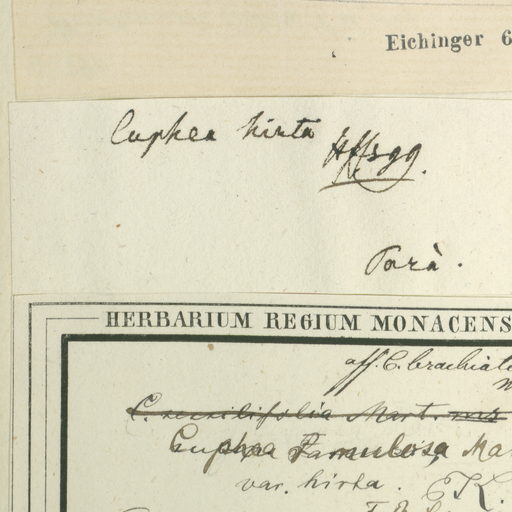 Eichinger 6
Cuphea hirta Hffsgg.
Parà.
HERBARIUM REGIUM MONACENS
aff. C. brachiat
C. sessilifolia Mart. ms
Cuphea Ramulosa Mar
var. hirta. K.